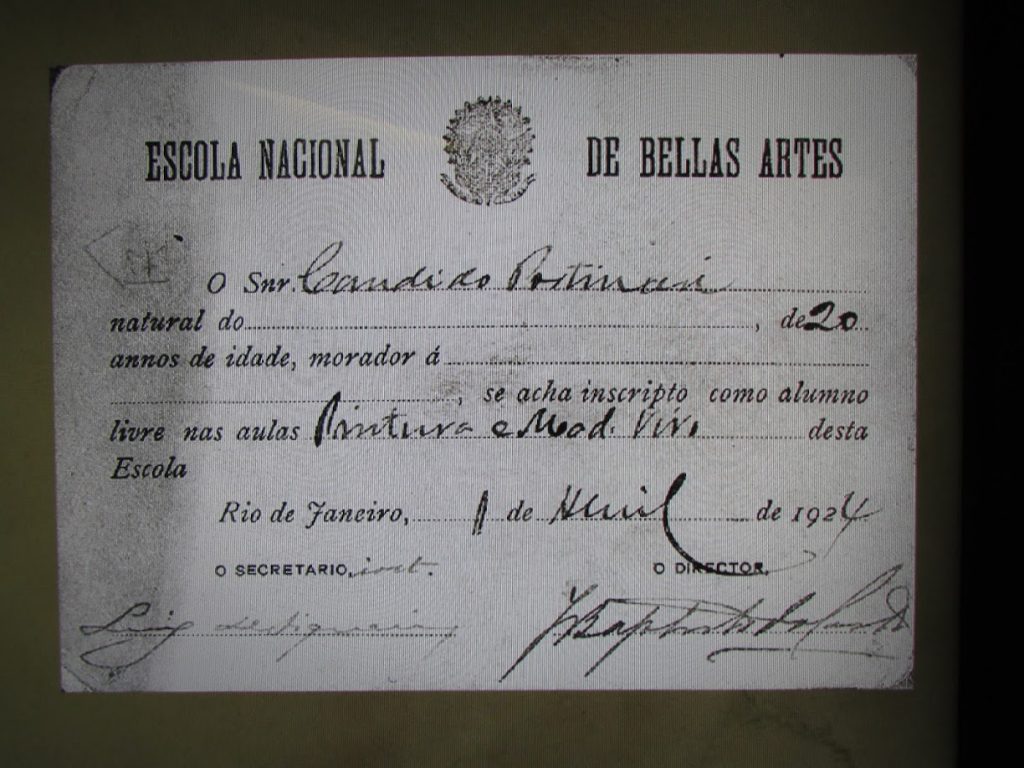 ESCOLA NACIONAL DE BELLAS ARTES
O Snr. Candido Portinari
natural do , de 20
annos de idade, morador á
, se acha inscripto como alumno
livre nas aulas Pintura e Mod. Vivo desta
Escola
Rio de Janeiro, 1 de Abril de 1924
O SECRETARIO, int. O DIRECTOR,
Luiz JBaptista da Costa